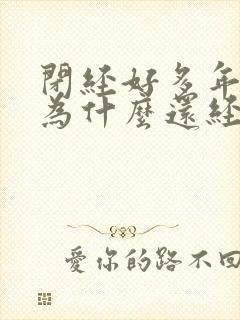 閉經好多年
為什麼還經
愛你的路不回